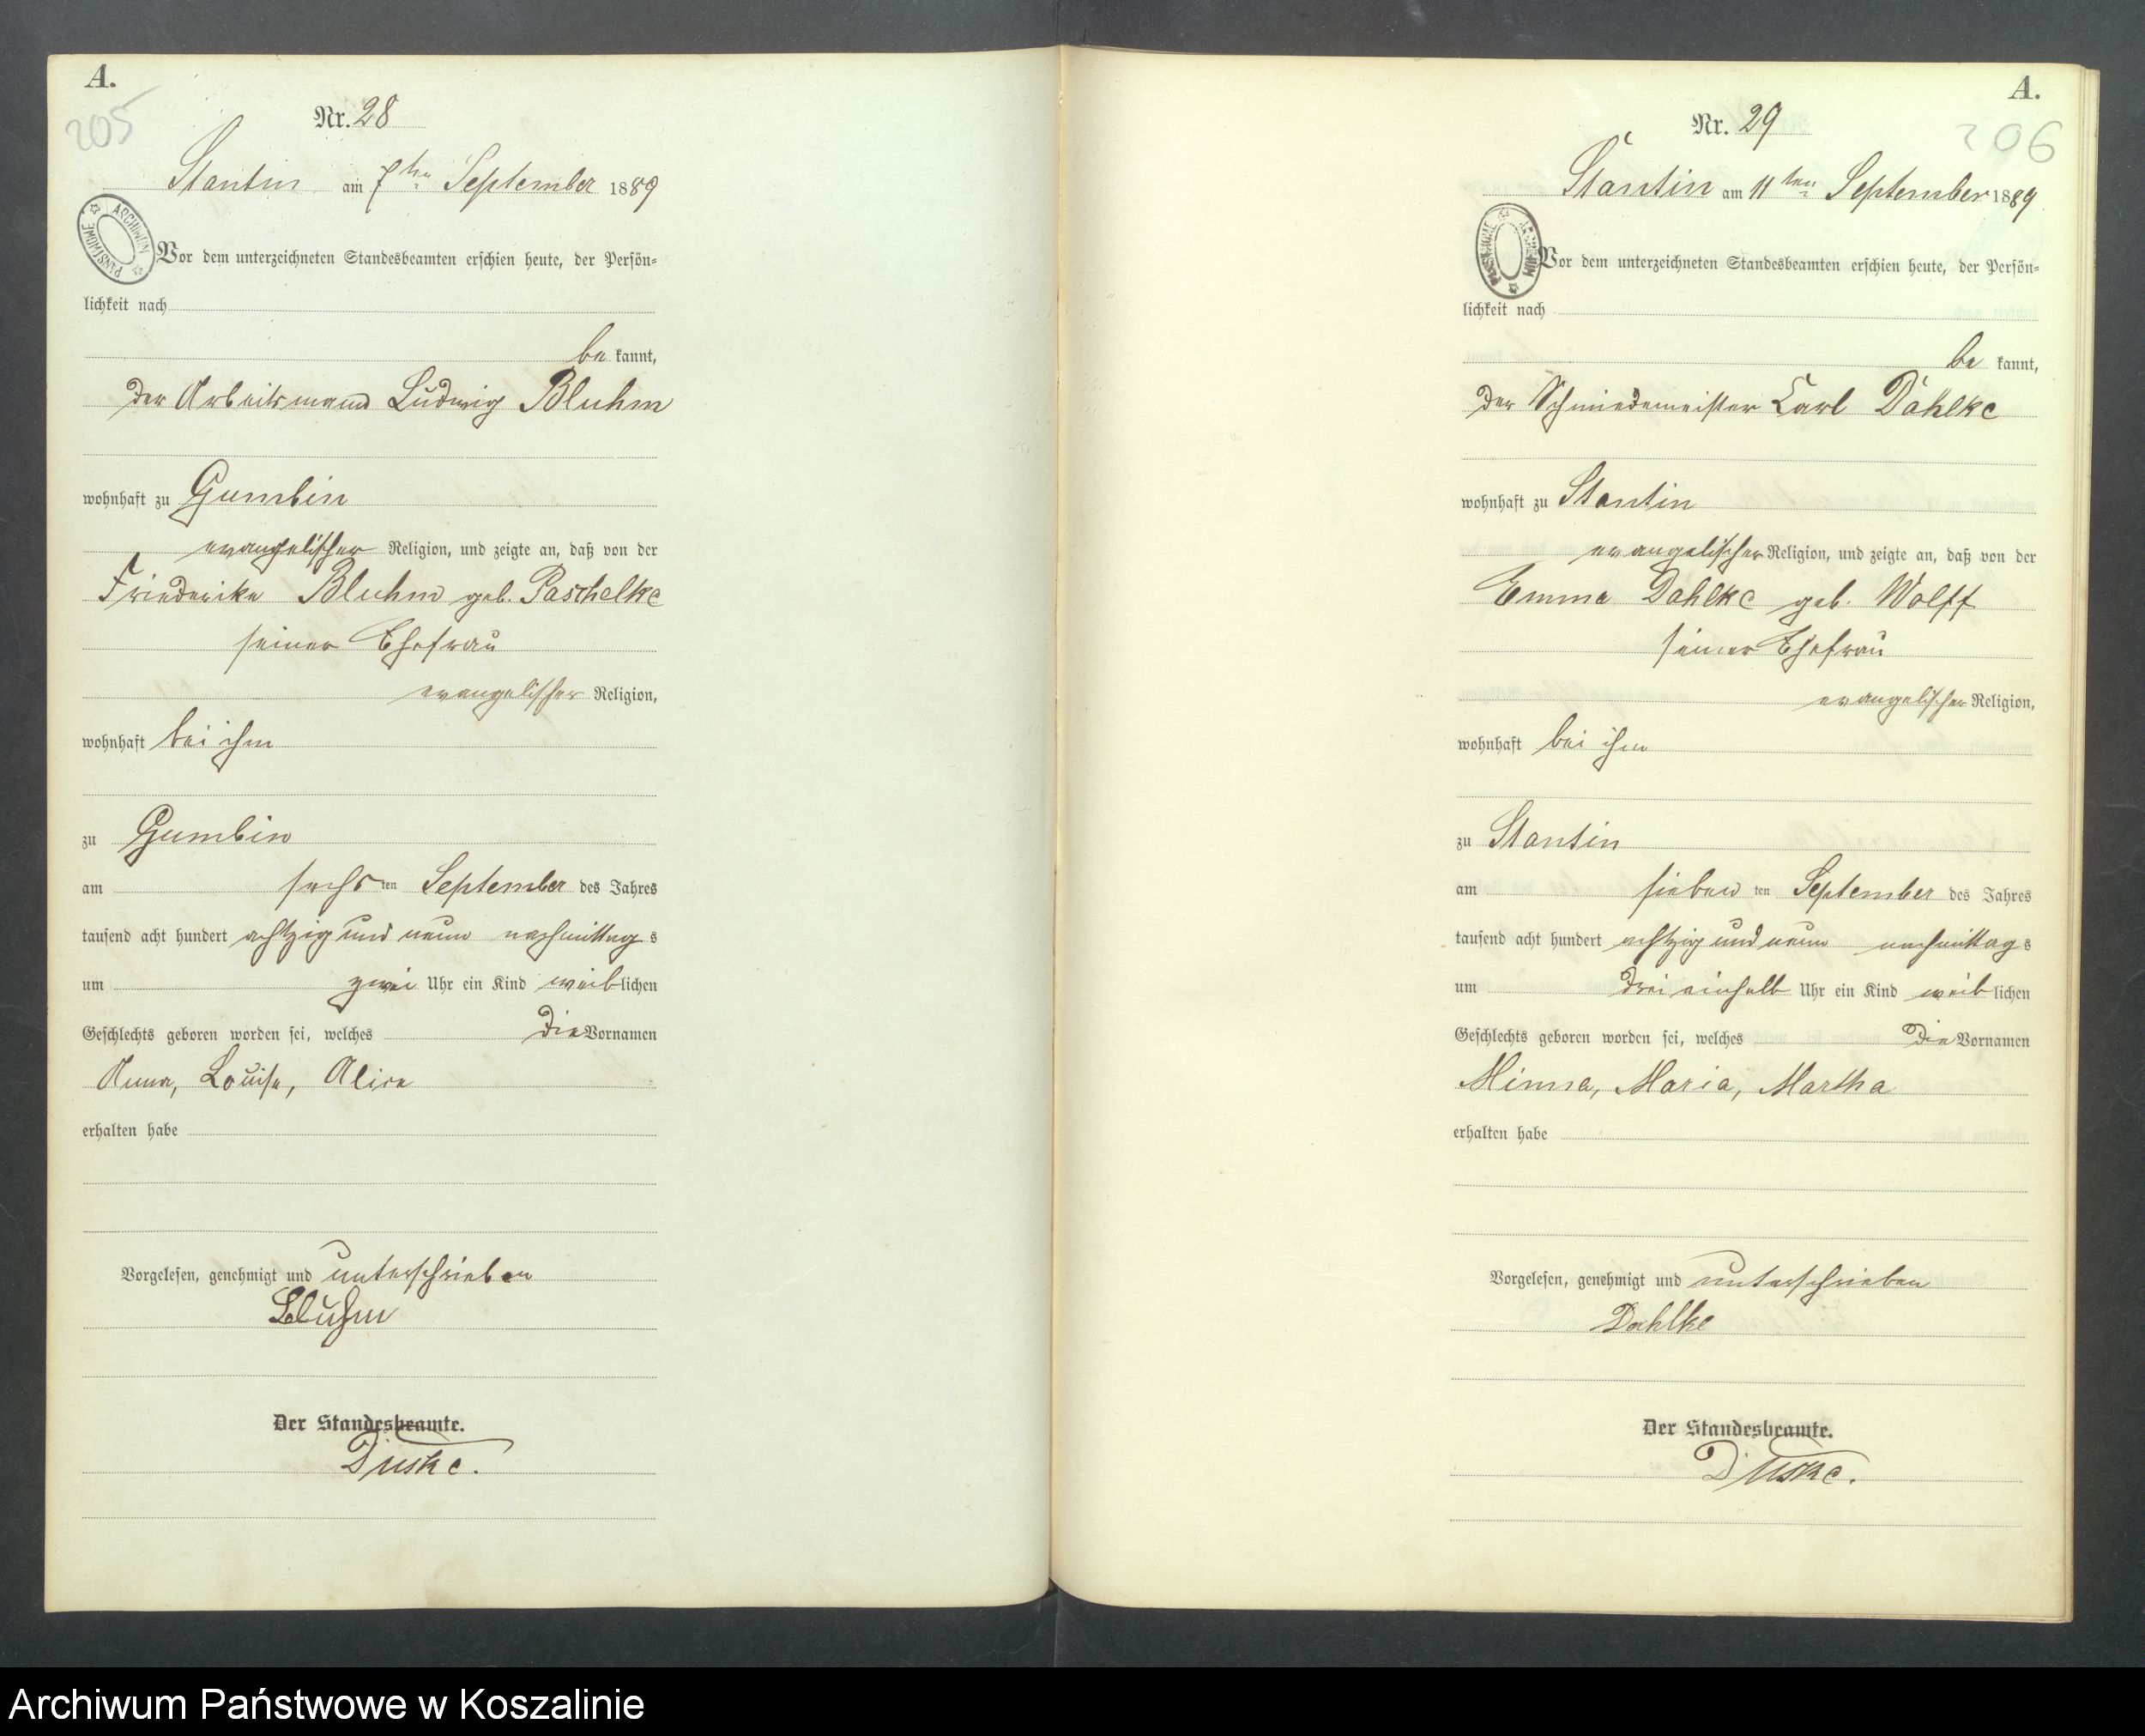 A.
205
Nr. 28
Stantin am 7ten September 1889
ARCHIWUM PAŃSTWOWE
Vor dem unterzeichneten Standesbeamten erschien heute, der Persön=
lichkeit nach
be kannt,
der Arbeitsmann Ludwig Bluhm
wohnhaft zu Gumbin
evangelischer Religion, und zeigte an, daß von der
Friederike Bluhm geb. Paschelke
seiner Ehefrau
evangelischer Religion,
wohnhaft bei ihm
zu Gumbin
am sechsten September des Jahres
tausend acht hundert achtzig und neun nachmittags
um zwei Uhr ein Kind weiblichen
Geschlechts geboren worden sei, welches die Vornamen
Anna, Louise, Alice
erhalten habe
Vorgelesen, genehmigt und unterschrieben
Bluhm
Der Standesbeamte.
A.
206
Nr. 29
Stantin am 11ten September 1889
Vor dem unterzeichneten Standesbeamten erschien heute, der Persön=
lichkeit nach
be kannt,
der Schmiedemeister Carl Dahlke
wohnhaft zu Stantin
evangelischer Religion, und zeigte an, daß von der
Emma Dahlke geb. Wolff
seiner Ehefrau
evangelischer Religion,
wohnhaft bei ihm
zu Stantin
am siebenten September des Jahres
tausend acht hundert achtzig und neun nachmittags
um drei einhalb Uhr ein Kind weiblichen
Geschlechts geboren worden sei, welches die Vornamen
Minna, Maria, Martha
erhalten habe
Vorgelesen, genehmigt und unterschrieben
Dahlke
Der Standesbeamte.
Archiwum Państwowe w Koszalinie